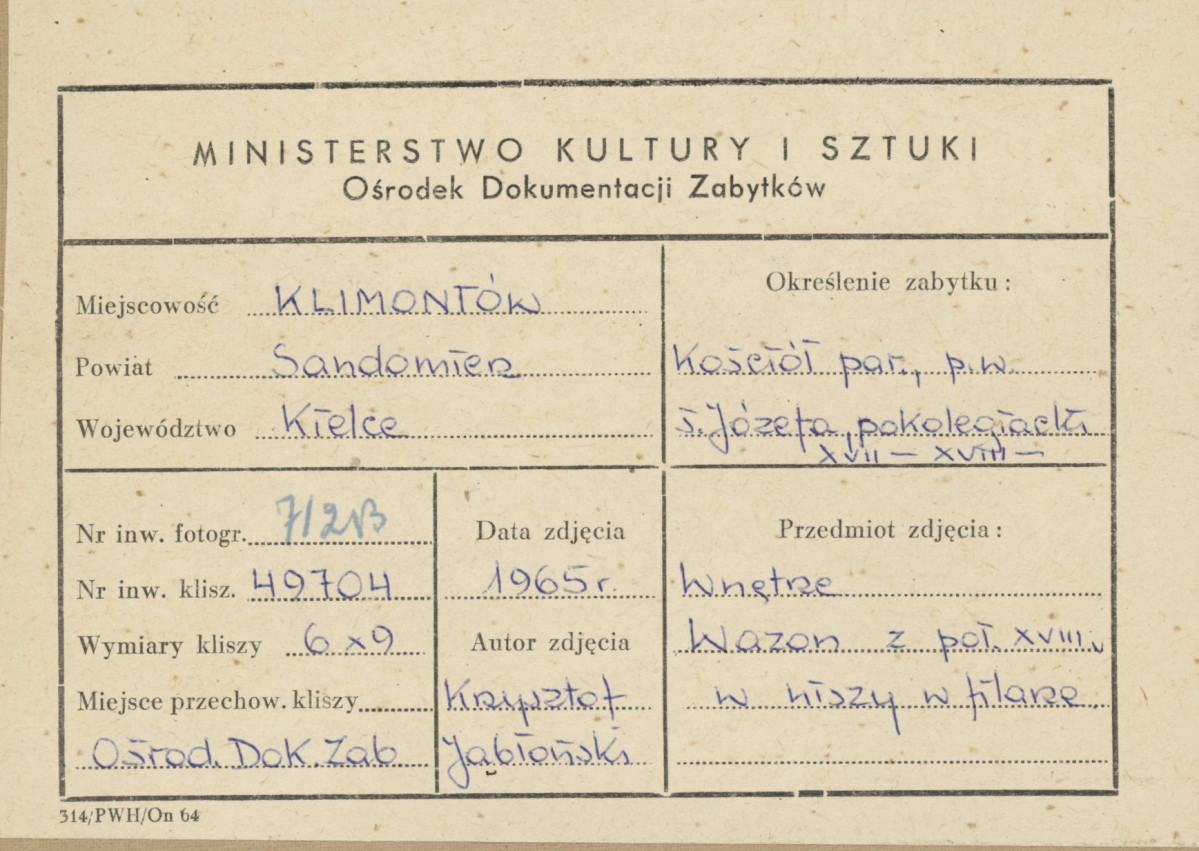 MINISTERSTWO KULTURY I SZTUKI
Ośrodek Dokumentacji Zabytków
Miejscowość KLIMONTÓW
Powiat Sandomierz
Województwo Kielce
Określenie zabytku:
Kościół par., p.w.
ś. Józefa, pokolegiacki
XVII – XVIII –
Nr inw. fotogr.
Nr inw. klisz. 49704
Wymiary kliszy 6 x 9
Miejsce przechow. kliszy
Ośrod. Dok. Zab
Data zdjęcia
1965 r.
Autor zdjęcia
Krzysztof
Jabłoński
Przedmiot zdjęcia:
Wnętrze
Wazon z poł. XVIII w
w niszy w filarze.
314/PWH/On 64